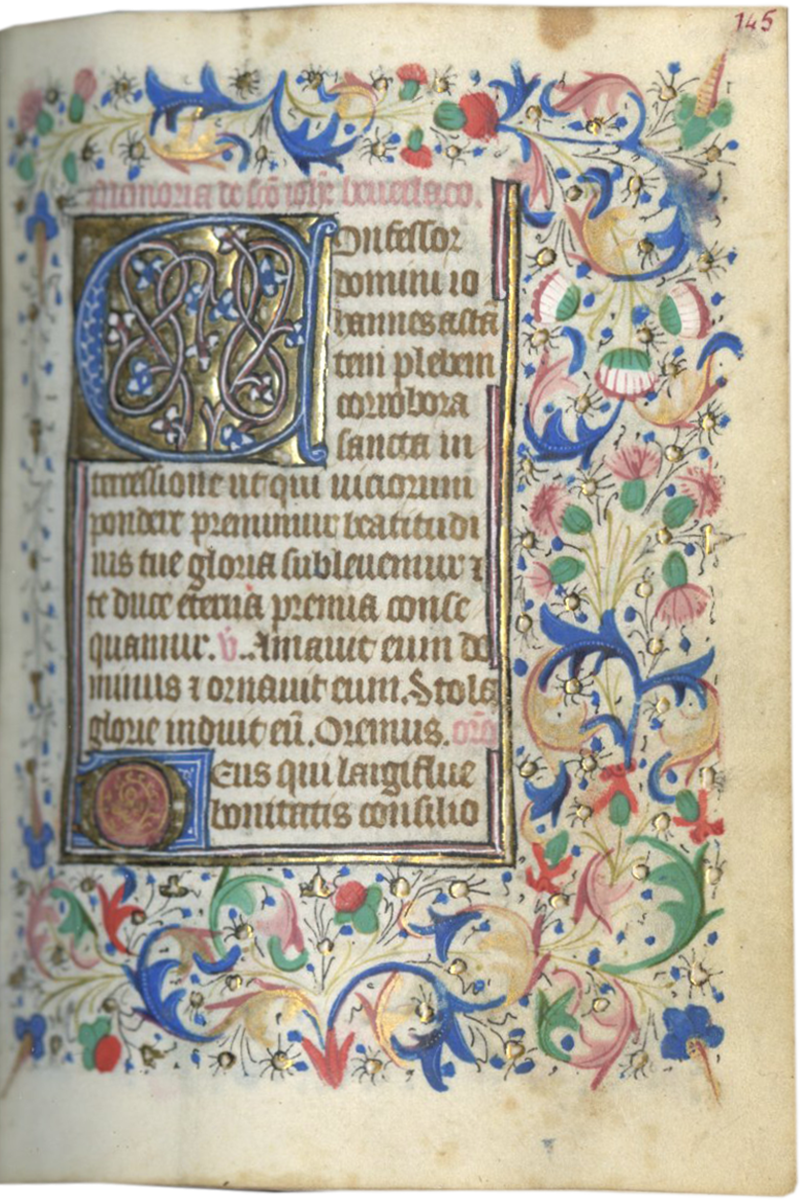 145
Memoria de scō ioh̄e beuerlaco.
Confessor
domini io
hannes astā
tem plebem
corrobora
sancta in
tercessione ut qui uiciorum
pondere premimur beatitudi
nis tue gloria subleuemur ⁊
te duce eterna premia conse
quamur. v̄. Amauit eum do
minus ⁊ ornauit eum. Stola
glorie induit eū. Oremus. orō
Deus qui largiflue
bonitatis consilio